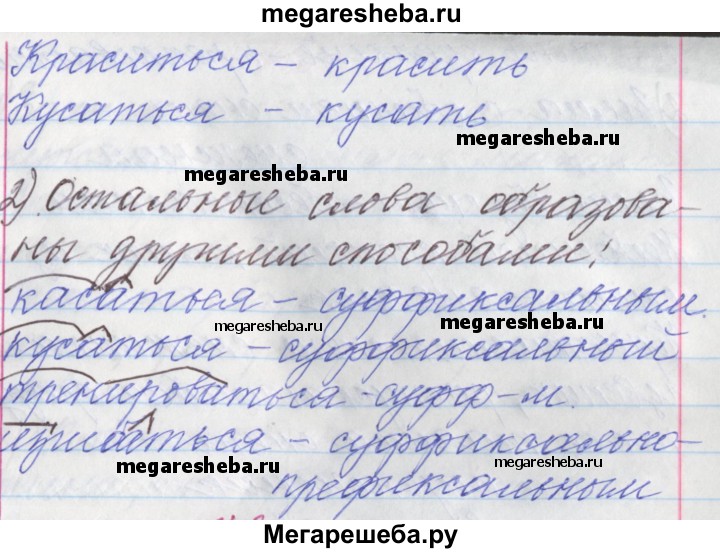 megaresheba.ru
Краситься – красить
megaresheba.ru
Кусаться – кусать
megaresheba.ru
megaresheba.ru
2) Остальные слова образова-
ны другими способами:
касаться – суффиксальным.
megaresheba.ru
megaresheba.ru
кусаться – суффиксальный
тренироваться - суфф-м.
megaresheba.ru
– суффиксально-
megaresheba.ru
megaresheba.ru
префиксальным
Мегарешеба.ру